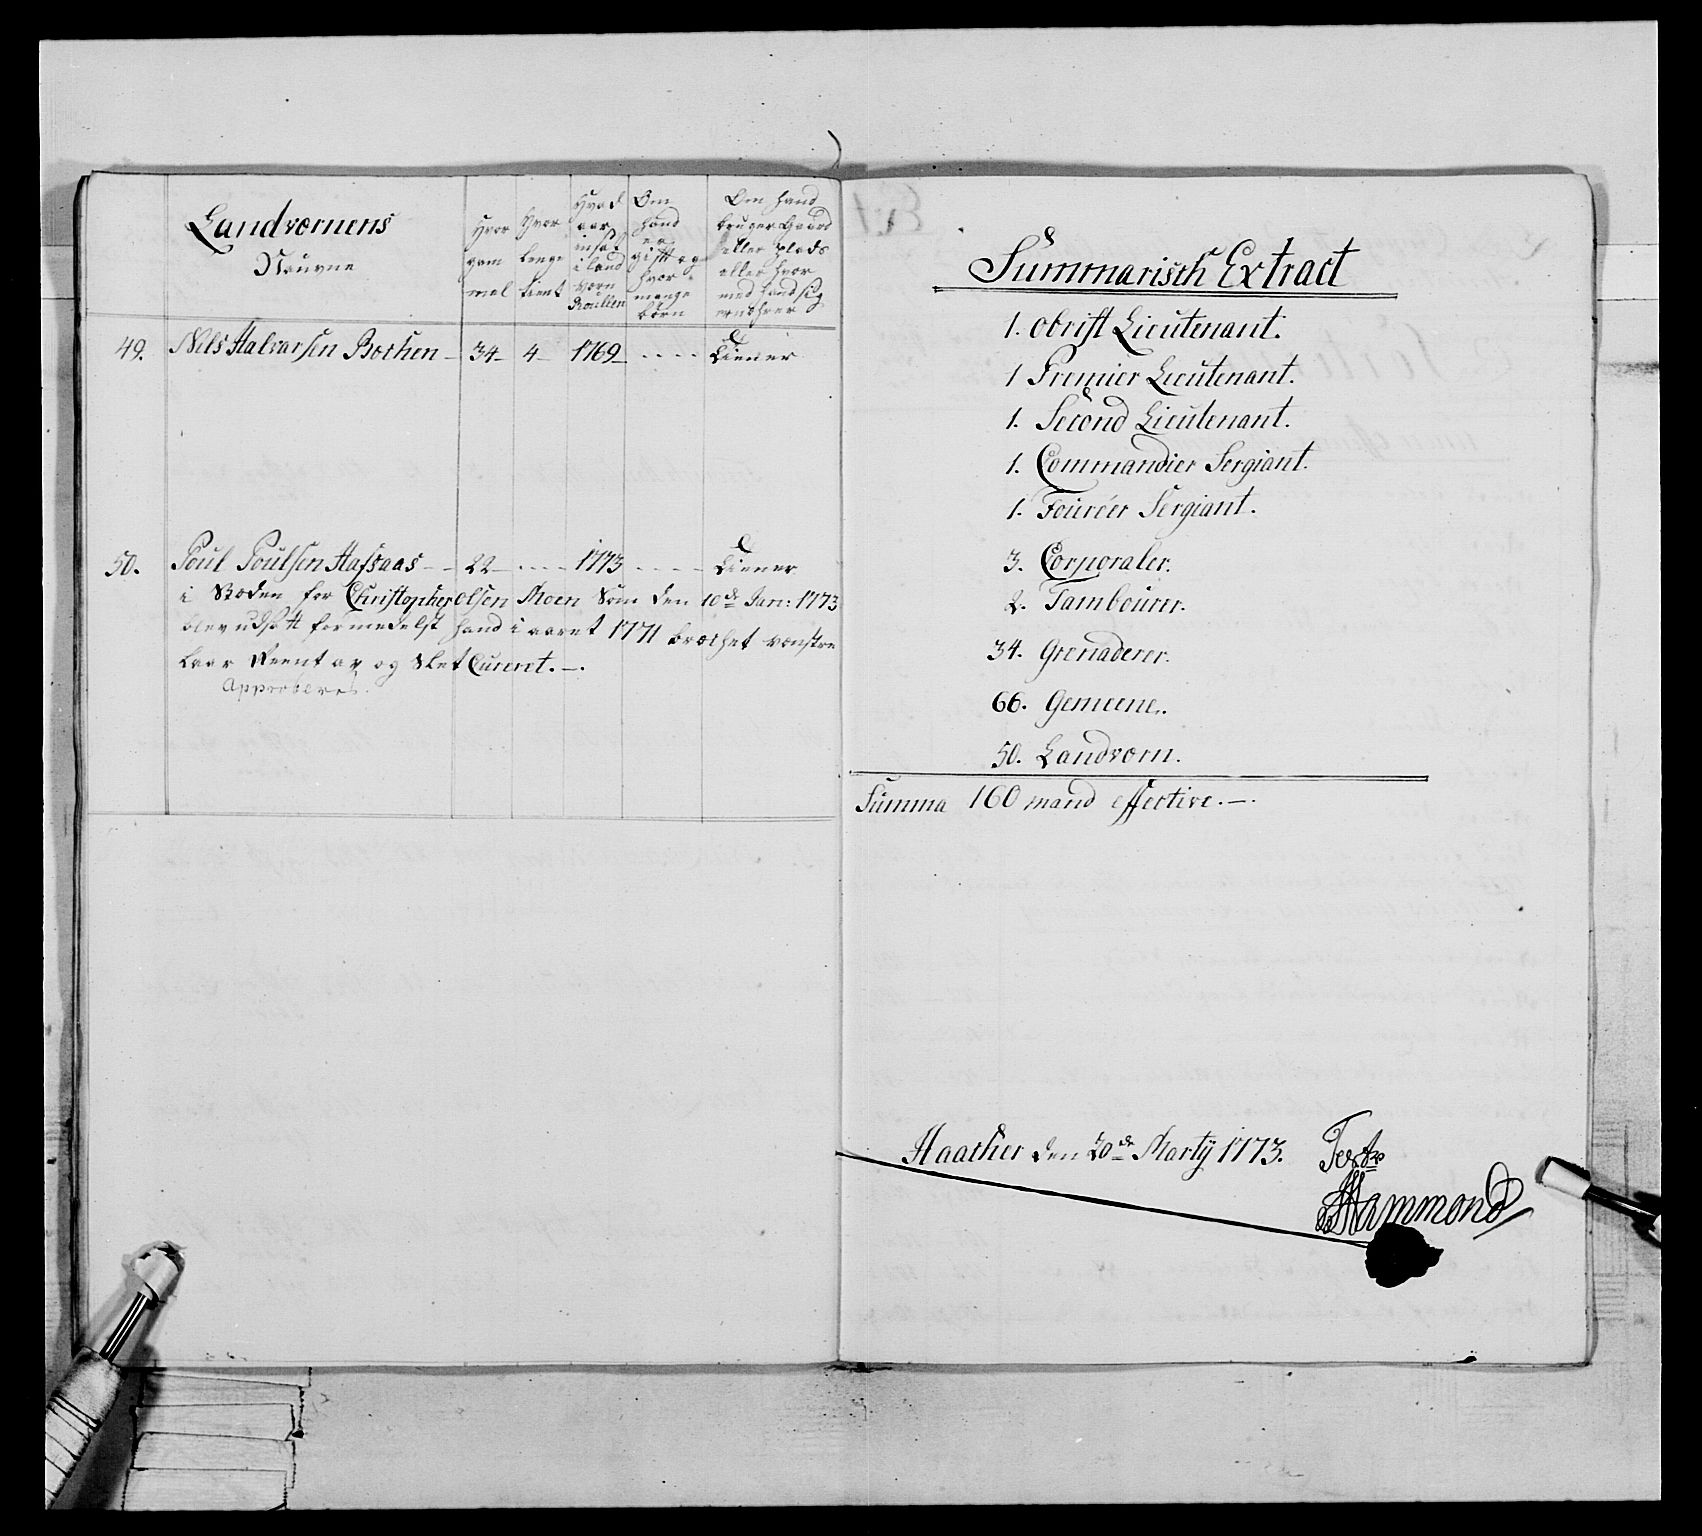 Landværnens
Naune
Hvor
gam
mel
Hvor
lenge
tient
Hvad
aar
indsat
i land
værn
Roullen
Om
hand
er
gift og
hvor
mange
børn
Om hand
bruger Gaard
eller plads
eller hvor
med hand sig
ernæhrer
49. Nils Halvarsen Bæchen - 34 - 4 - 1769 - - - - - tiener
50. Poul Poulsen Hafsaas - - 22 - - - - 1773 - - - - tiener
i Stæden for Christopher Olsen Moen Som den 10de Jan: 1773
blev udsatt formedelst hand i aaret 1771 bræchet venstre
Laar Beent av og Slet Cureret. -.
Approberes.
Summarisch Extract
1. Obrist Lieutenant.
1 Premier Lieutenant.
1. Second Lieutenant.
1. Commandier Sergiant.
1. Fouréer Sergiant.
3. Corporaler.
2. Tambourer.
34. Grenaderer.
66. Gemeene.
50. Landværn.
Summa 160 mand effective. -.
Haacher den 20de Martij 1773.
Hammond